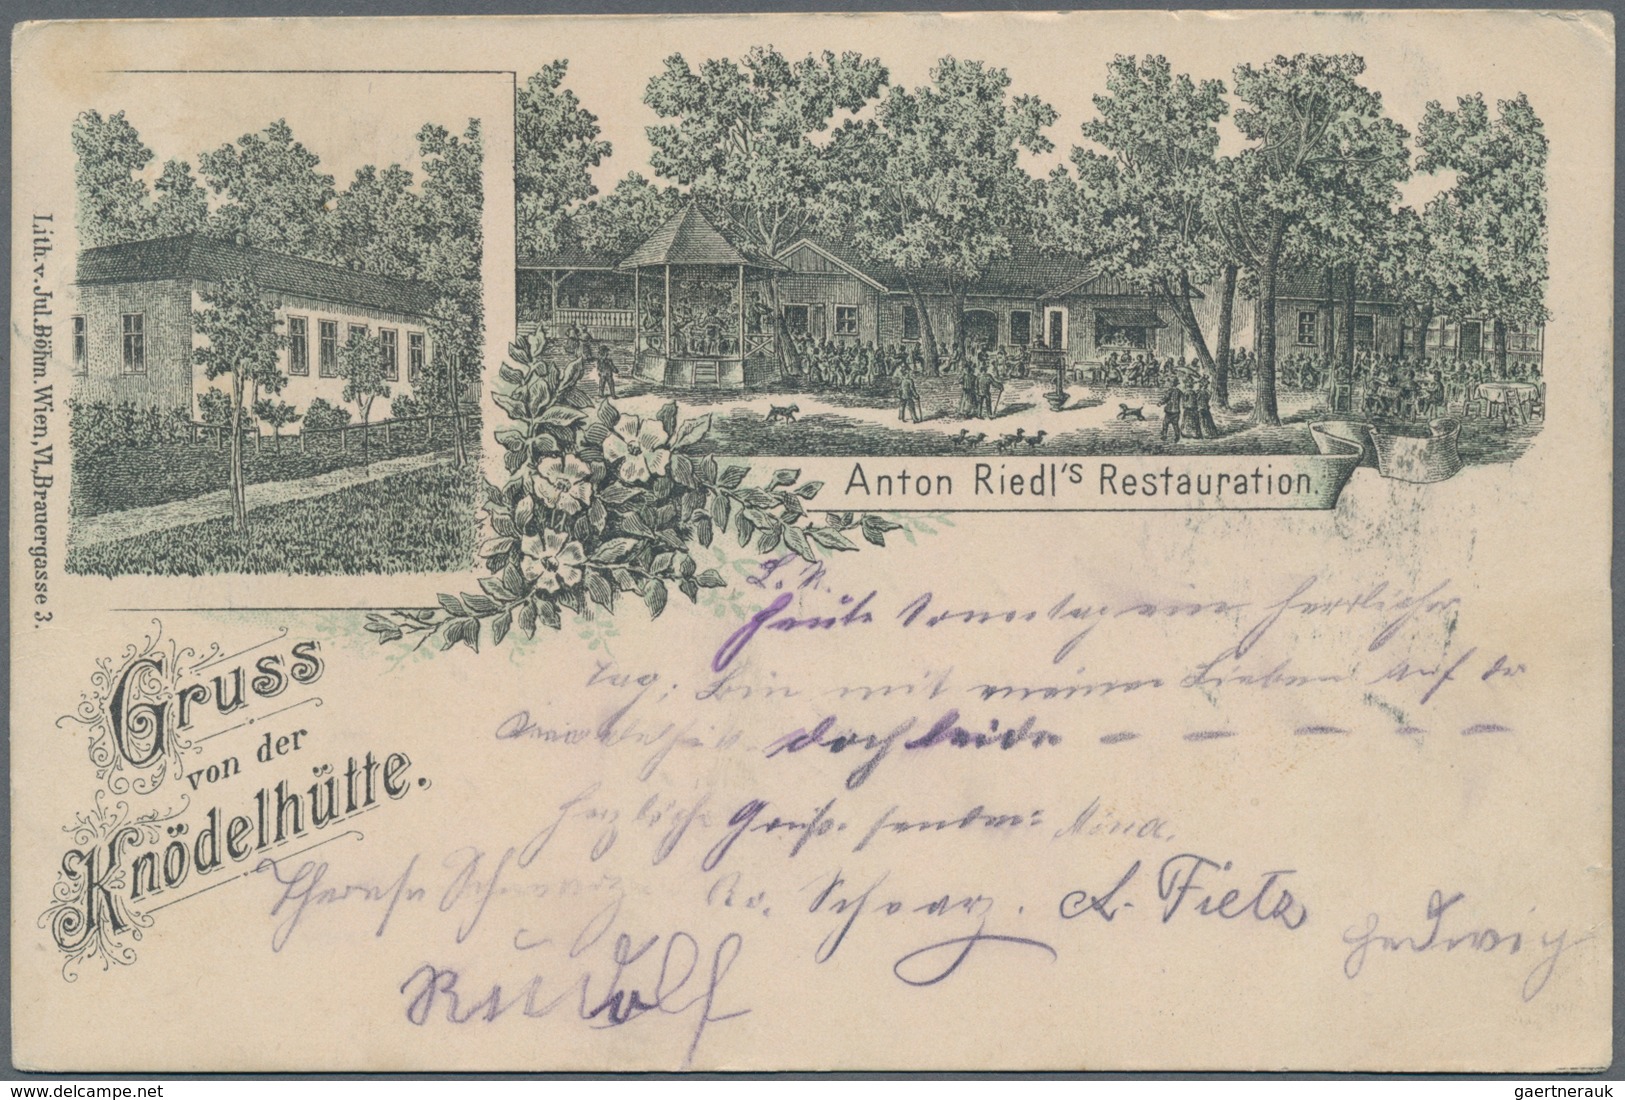 Lith. v. Jul. Böhm. Wien, VI., Brauergasse 3.
Anton Riedl's Restauration.
Gruss
von der
Knödelhütte.
L. N.
Heute Sonntag ein herrlicher
Tag; bin mit meinen Lieben auf der
doch leider – – – – –
Herzliche Grüße senden Mina.
Therese Schwarz Schwarz. A. Fietz Hedwig
Rudolf
delcampe.net
gaertnerauk